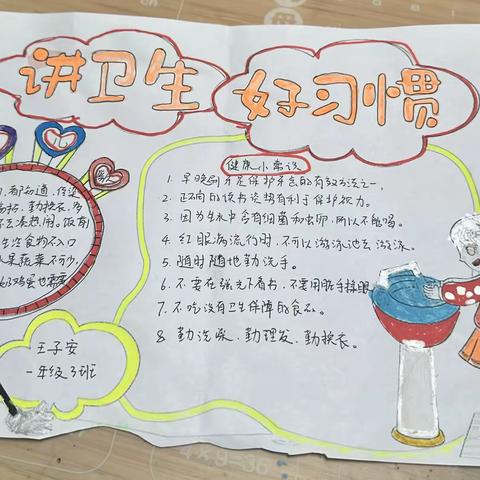 讲卫生
好习惯
健康小常识
1. 早晚刷牙是保护牙齿的有效方法之一,
2. 正确的读书姿势有利于保护视力。
3. 因为生水中含有细菌和虫卵,所以不能喝。
4. 红眼病流行时,不可以游泳池去游泳。
5. 随时随地勤洗手。
6. 不要在强光下看书,不要用脏手揉眼
7. 不吃没有卫生保障的食品。
8. 勤洗澡、勤理发、勤换衣。
勤换衣,
去凑热闹。饭前
生冷食物不入口
果蔬菜不可少,
王子安
一年级3班